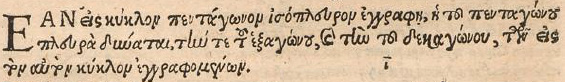 ΕΑΝ εἰς κύκλον πεντάγωνον ἰσόπλευρον ἐγγραφῇ, ἡ τοῦ πενταγώνου
πλευρὰ δύναται, τὴν τε τοῦ ἑξαγώνου, καὶ τὴν τοῦ δεκαγώνου, τῶν εἰς
τὸν αὐτὸν κύκλον ἐγγραφομένων.
ῑ